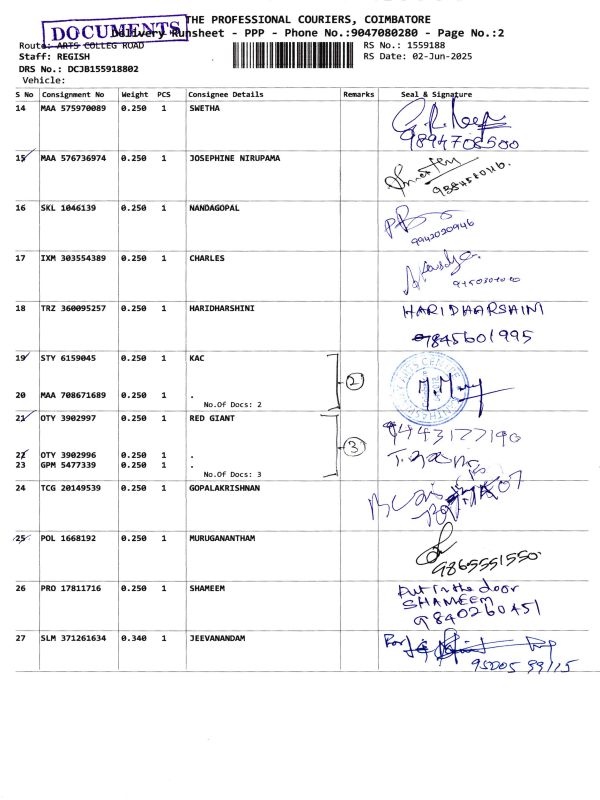 THE PROFESSIONAL COURIERS, COIMBATORE
DOCUMENTS
Delivery Runsheet - PPP - Phone No.:9047080280 - Page No.:2
Route: ARTS COLLEG ROAD RS No.: 1559188
Staff: REGISH RS Date: 02-Jun-2025
DRS No.: DCJB155918802
Vehicle:
S No Consignment No Weight PCS Consignee Details Remarks Seal & Signature
14 MAA 575970089 0.250 1 SWETHA
9894708500
15 MAA 576736974 0.250 1 JOSEPHINE NIRUPAMA
16 SKL 1046139 0.250 1 NANDAGOPAL
9942020946
17 IXM 303554389 0.250 1 CHARLES
18 TRZ 360095257 0.250 1 HARIDHARSHINI HARIDHARSHINI
9845601995
19 STY 6159045 0.250 1 KAC
2
20 MAA 708671689 0.250 1 .
No.Of Docs: 2
21 OTY 3902997 0.250 1 RED GIANT
9443177190
3
22 OTY 3902996 0.250 1 .
23 GPM 5477339 0.250 1 .
No.Of Docs: 3
24 TCG 20149539 0.250 1 GOPALAKRISHNAN
25 POL 1668192 0.250 1 MURUGANANTHAM
9865551550
26 PRO 17811716 0.250 1 SHAMEEM Put in the door
SHAMEEM
9840260451
27 SLM 371261634 0.340 1 JEEVANANDAM For
95005 99115